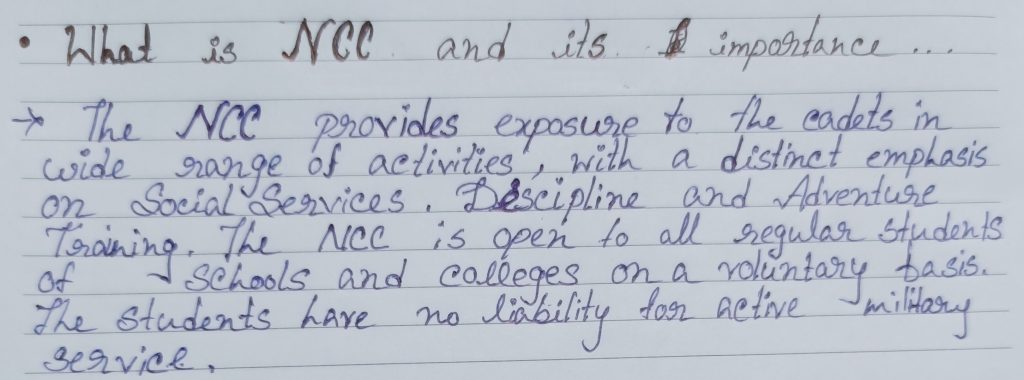 • What is NCC and its importance ...
→ The NCC provides exposure to the cadets in
wide range of activities, with a distinct emphasis
on Social Services. Descipline and Adventure
Training. The NCC is open to all regular students
of schools and colleges on a voluntary basis.
The students have no liability for active military
service.